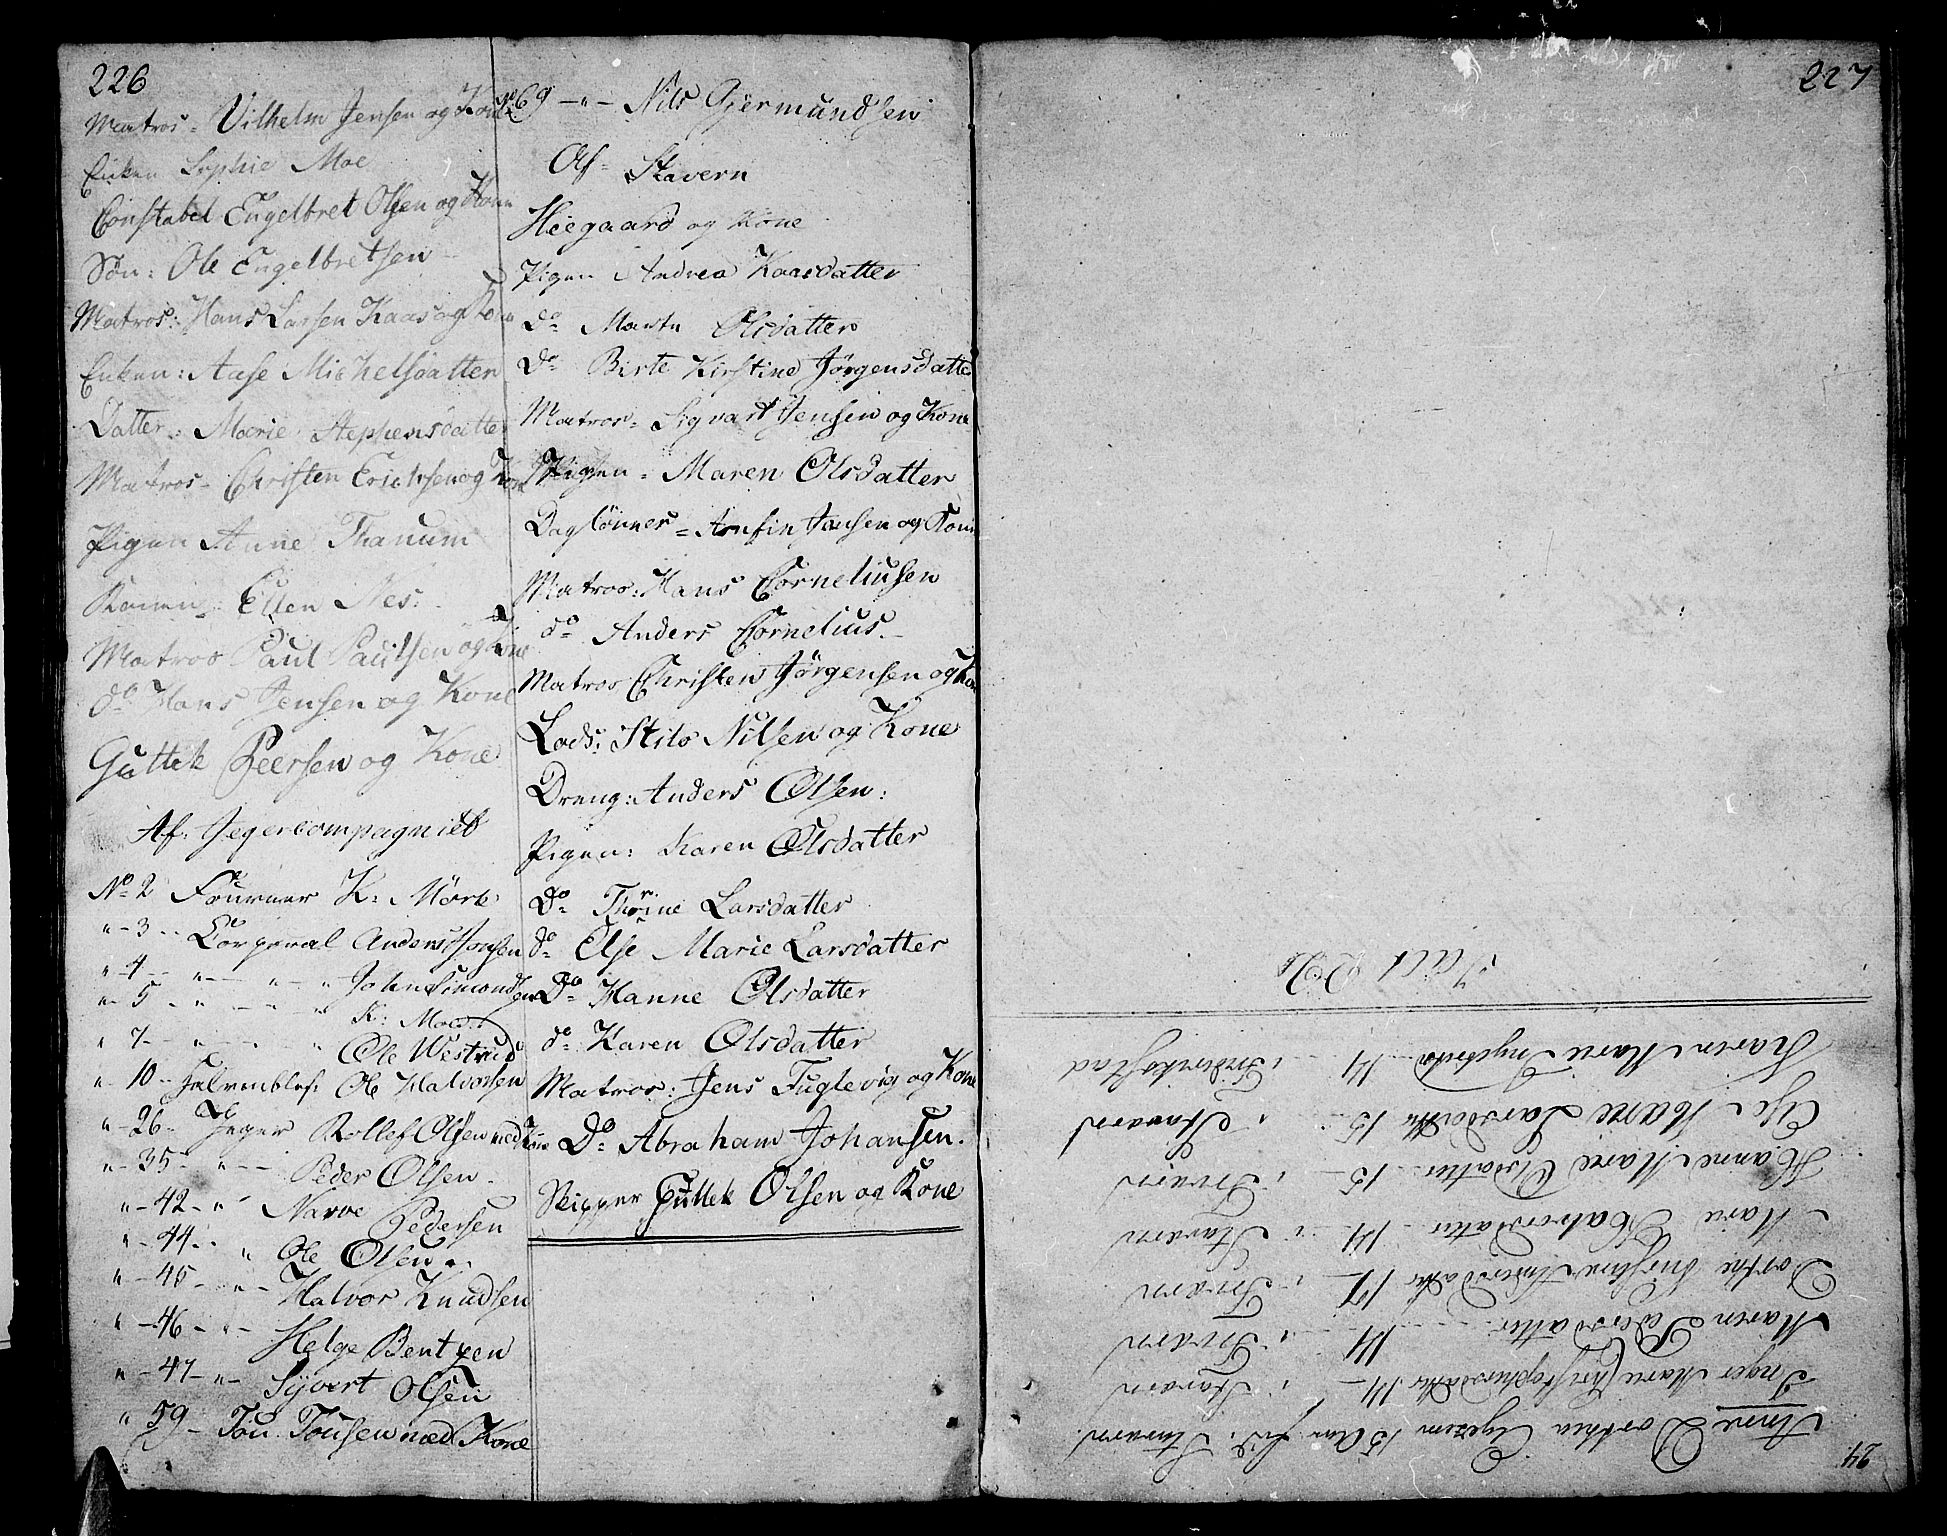 226
Matros = Vilhelm Jensen og Kone
Enken Sophie Moe
Constabel Engelbret Olsen og Kone
Søn: Ole Engelbretsen
Matros: Hans Larsen Kaas og Kone
Enken: Aase Michelsdatter
Datter: Marie Stephensdatter
Matros - Christen Erichsen og Kone
Pigen Anne Thanum
Konen Ellen Nes:
Matros Paul Paulsen og Kone
do Hans Jensen og Kone
Guttek Peersen og Kone
Af: Jegercompagniet
No 2 Fourneer K: Mörk
" - 3 - - Corporal Anders Hansen
" - 4 - - " - - " - " John Simondsen
" - 5 - " - - " - " K: Moe
" 7 - - " - - " Ole Westrud
" - 10 - Halvmbles: Ole Halvorsen
" - 26 - Jeger Rollef Olsen med Kone
" - 35 - " - - Peder Olsen -
" - 42 - " Narve Pedersen
" - 44 - - " Ole Olsen
" - 45 - " - Halvor Knudsen
" - 46 - " - Helge Bentzen
" - 47 - " - Syvert Olsen
" 59 - Tou Tousen med Kone
No 69 - " - Nils Gjermundsen
Af = Stavern
Heegaard og Kone
Pigen Andrea Kaasdatter
Do Marte Olsdatter
Do Birte Kirstine Jörgensdatter
Matros = Sigvart Jensen og Kone
Pigen = Maren Olsdatter
Daglönner = Arnfin Jansen og Kone
Matros: Hans Corneliusen
do Anders Cornelius -
Matros Christen Jörgensen og Kone
Lods: Stils Nilsen og Kone
Dreng: Anders Olsen:
Pigen: Karen Olsdatter
Do Thrine Larsdatter
do Else Marie Larsdatter
Do Hanne Olsdatter
do Karen Olsdatter
Matros: Jens Fuglevig og Kone
Do Abraham Johansen.
Skipper Guttek Olsen og Kone
227
24
Anne Dorthea 15 Aar fød i Stavern
Inger Marie Christophersdatter 14 - i Stavern
Maren Pedersdatter - - 14 - - i Stavern
Dorthe Kirstine Andersdatter 17 - i Stavern
Marie Halvorsdatter - 14 - i - Stavern
Hanne Marie Olsdatter - 15 - i Stavern
Else Marie Larsdatter 15 - - i Stavern
Karen Marie 14 - - i Fridrikstad